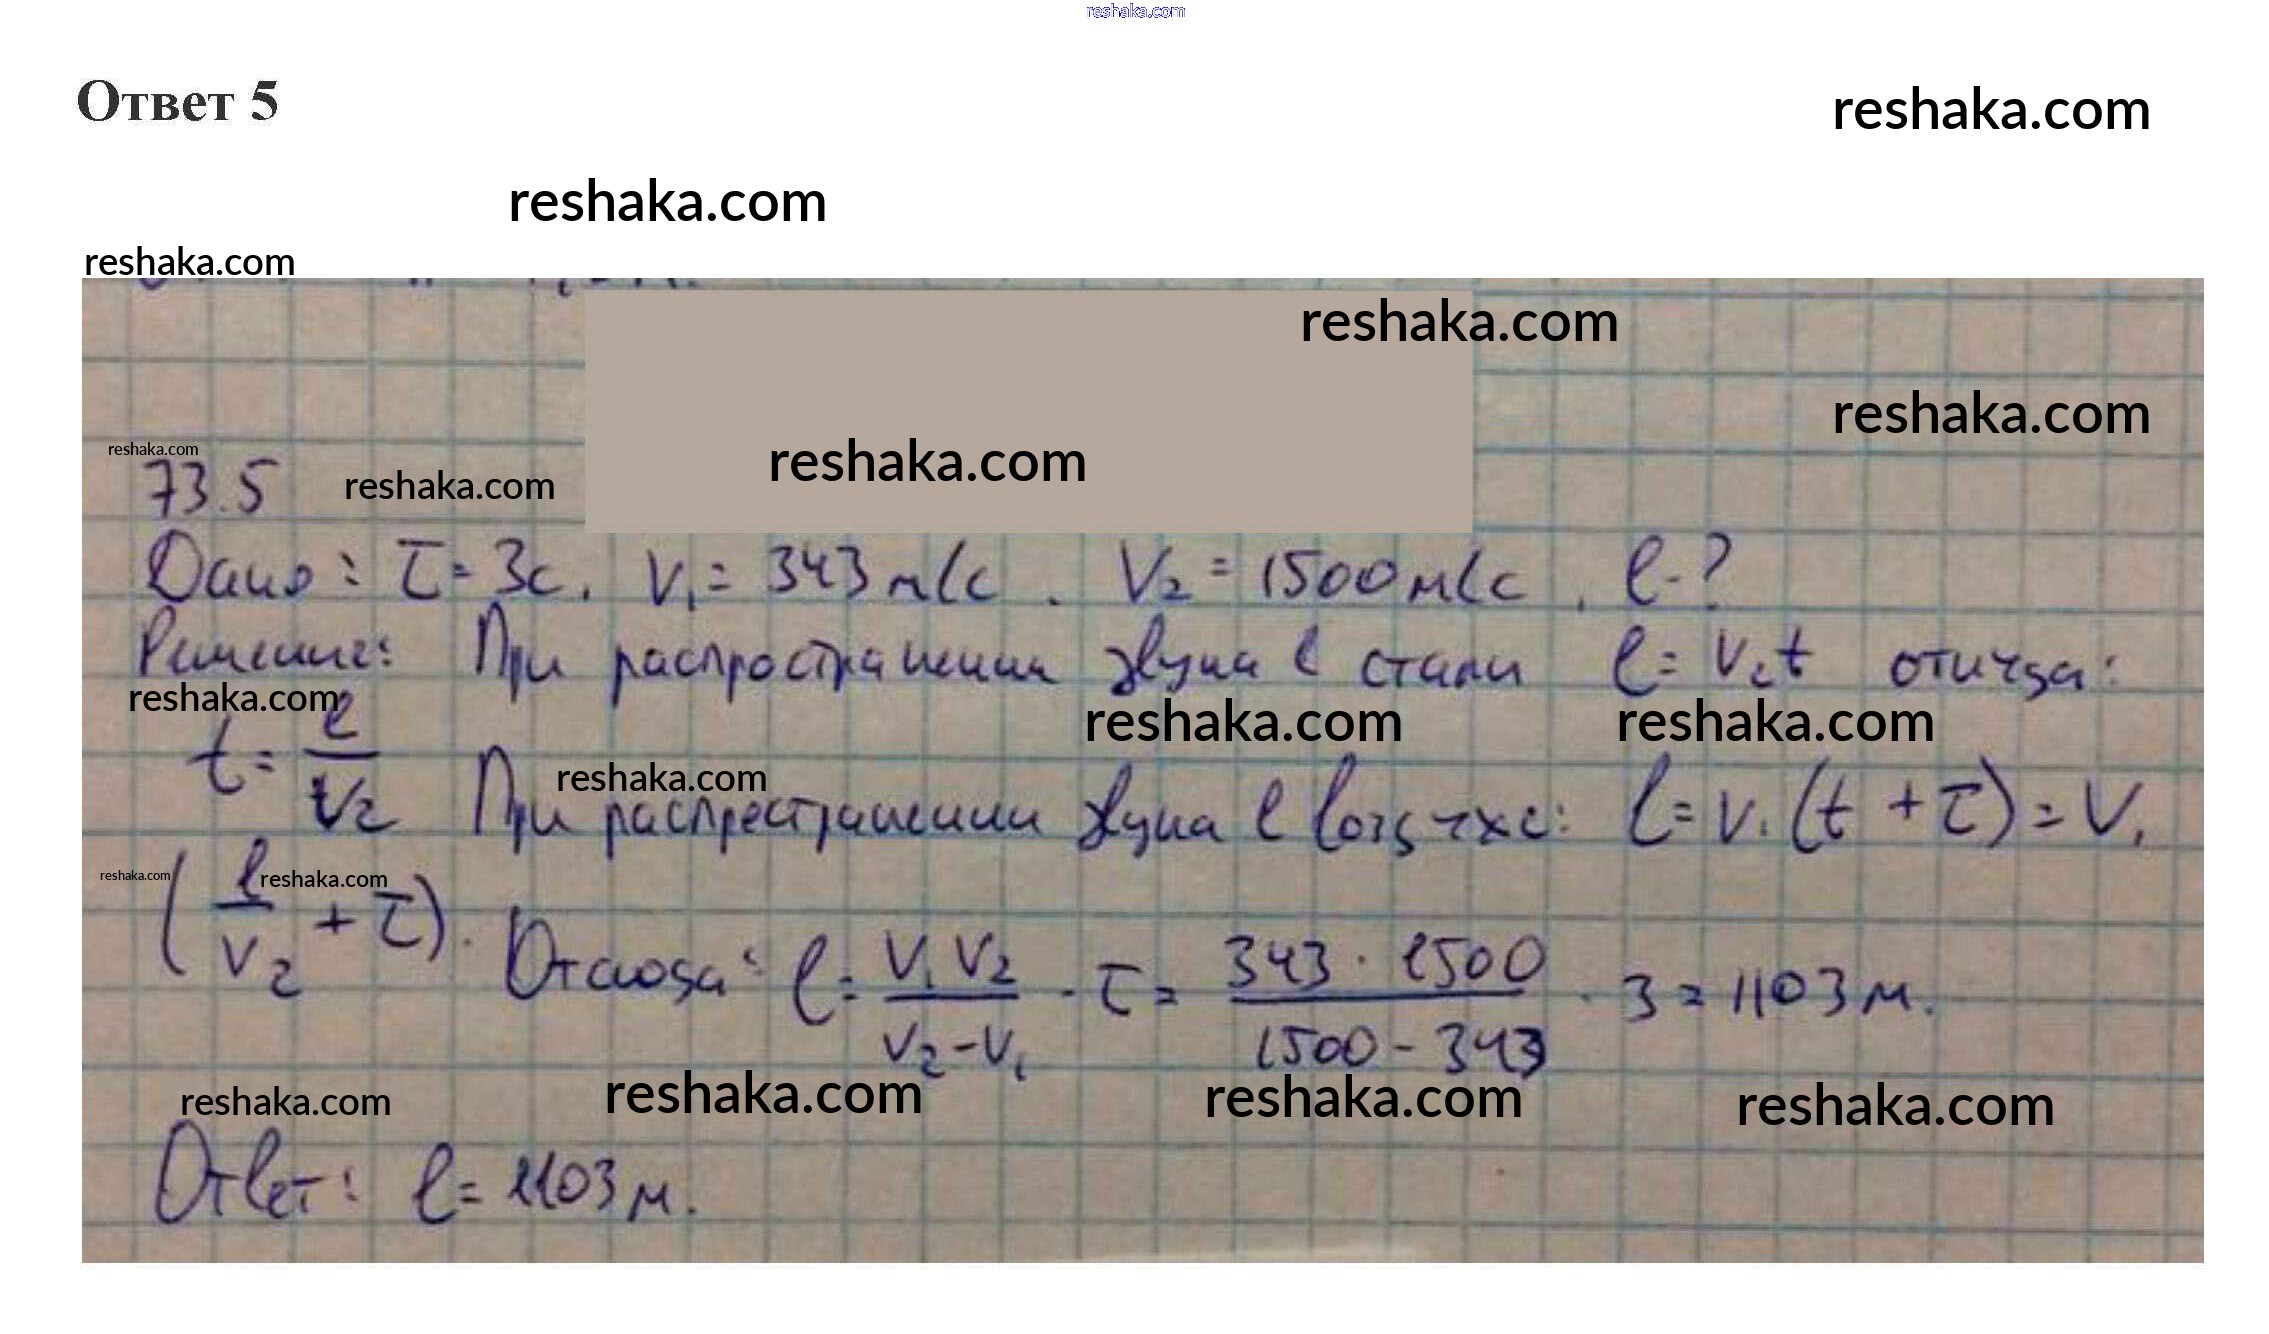 reshaka.com
Ответ 5
reshaka.com
reshaka.com
reshaka.com
reshaka.com
reshaka.com
reshaka.com
reshaka.com
73.5
reshaka.com
Дано: τ = 3с. V₁ = 343 м/с. V₂ = 1500 м/с, l - ?
Решение: При распространении звука в стали l = V₂t откуда:
reshaka.com
reshaka.com
reshaka.com
t = l/V₂ При распрестранении звука в воздухе: l = V₁(t + τ) = V₁
reshaka.com
reshaka.com
reshaka.com
(l/V₂ + τ). Отсюда: l = V₁V₂/V₂-V₁ · τ = 343 · 1500/1500 - 343 · 3 = 1103 м.
reshaka.com
reshaka.com
reshaka.com
reshaka.com
Ответ: l = 1103 м.